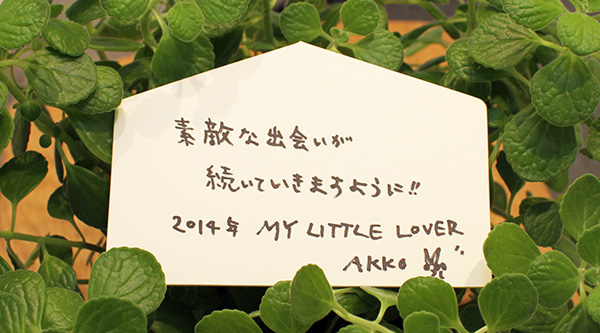 素敵な出会いが
続いていきますように!!
2014年 MY LITTLE LOVER
AKKO